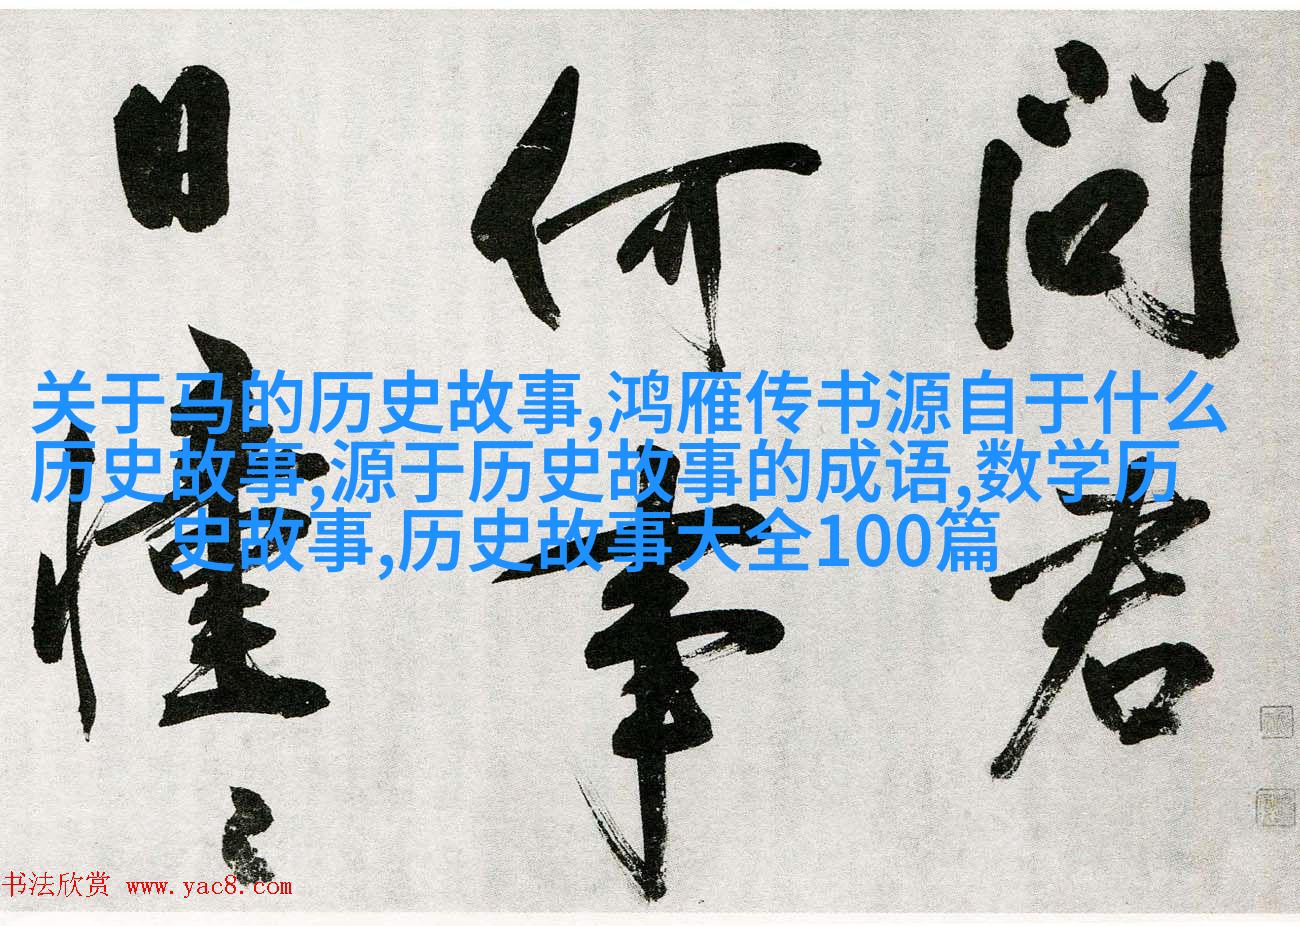 问君
何事
日憧々
关于马的历史故事,鸿雁传书源自于什么
历史故事,源于历史故事的成语,数学历
史故事,历史故事大全100篇
书法欣赏 www.yac8.com